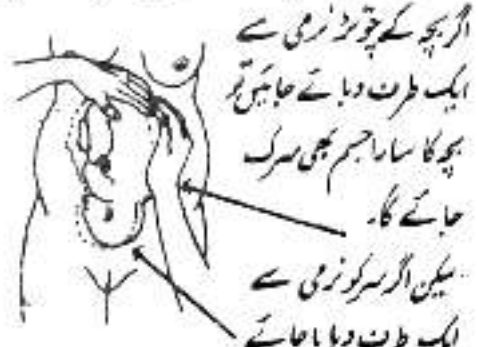 اگر بچہ کے چوتڑ نرمی سے
ایک طرف دبائے جائیں تو
بچہ کا سارا جسم بھی سرک
جائے گا۔
لیکن اگر سر کو نرمی سے
ایک طرف دبایا جائے